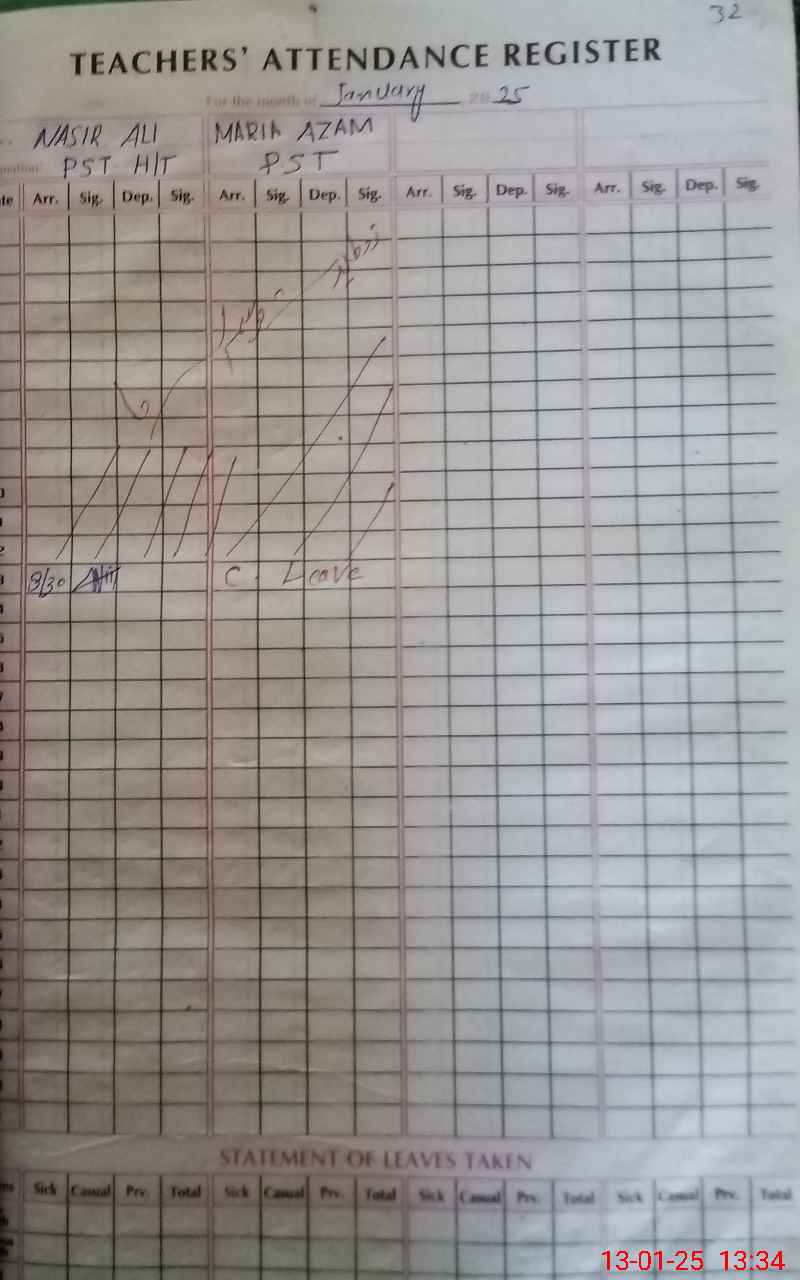 32
TEACHERS' ATTENDANCE REGISTER
For the month of January 2025
NASIR ALI MARIA AZAM
PST H/T PST
Arr. Sig. Dep. Sig. Arr. Sig. Dep. Sig. Arr. Sig. Dep. Sig. Arr. Sig. Dep. Sig.
8/30 C. Leave
STATEMENT OF LEAVES TAKEN
Sick Casual Prv. Total Sick Casual Prv. Total Sick Casual Prv. Total Sick Casual Prv. Total
13-01-25 13:34